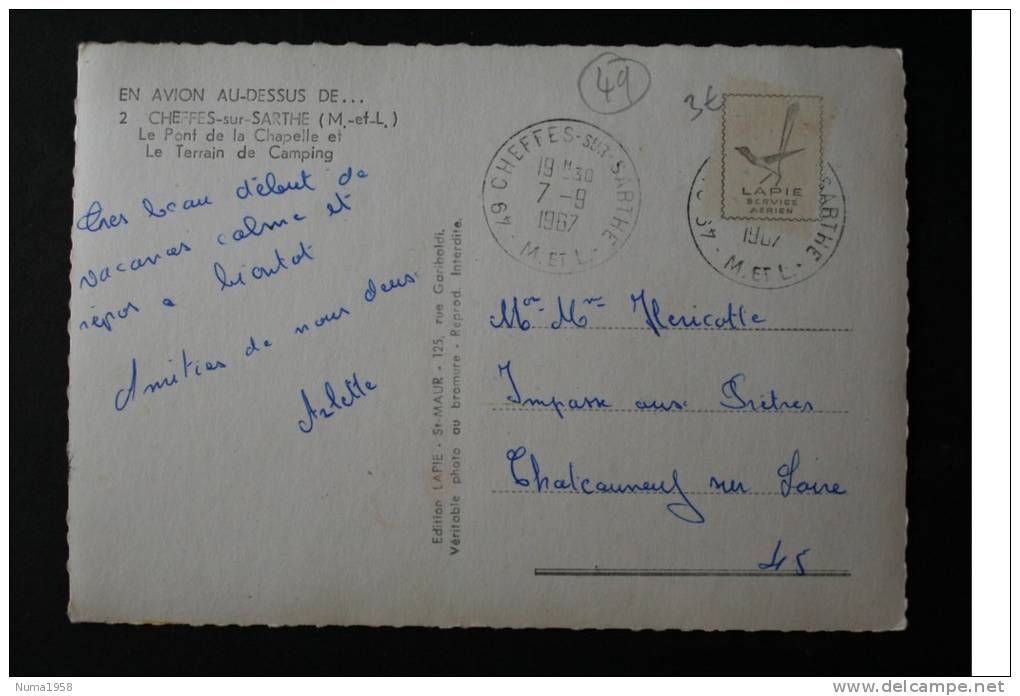 EN AVION AU-DESSUS DE...
2 CHEFFES-sur-SARTHE (M.-et-L.)
Le Pont de la Chapelle et
Le Terrain de Camping
très beau début de
vacances calme et
repos a bientot
Amitiés de nous deux
Arlette
Edition LAPIE - St-MAUR - 125, rue Garibaldi,
Véritable photo au bromure - Reprod. Interdite.
49
3€
49 CHEFFES-SUR-SARTHE
19 H30
7-9
1967
M. ET L.
LAPIE
SERVICE
AERIEN
SARTHE
1967
M. ET L.
Mr Mme Hericotte
Impasse aux Prêtres
Chateauneuf sur Loire
45
Numa1958
delcampe.net